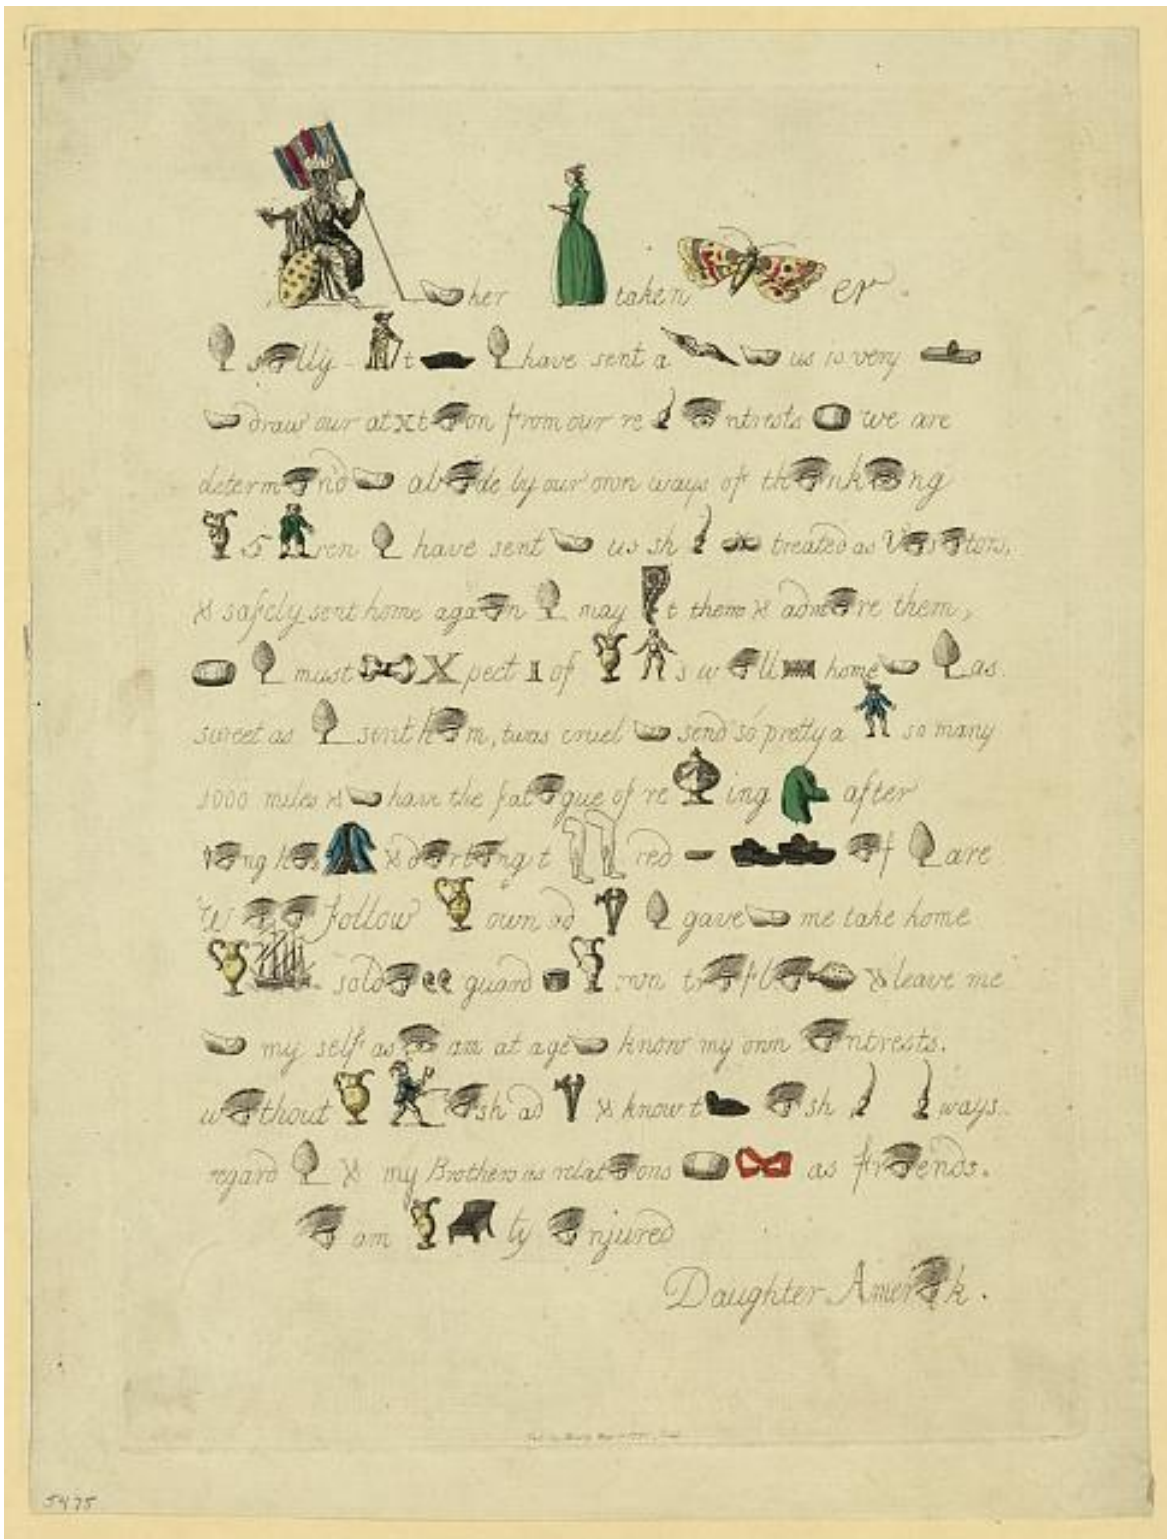 her taken er.
s lly - t have sent a us is very
draw our at t on from our re ntrests we are
determ nd ab de by our own ways of th nk ng
5 ren have sent us sh treated as V s tors,
& safely sent home aga n may t them & adm re them,
must X pect 1 of s w ll home as
sweet as sent h m, twas cruel send so pretty a so many
1000 miles & have the fat gue of re ing after
ng h s & d rt ng t red f are
W follow own ad gave me take home
sold guard own tr fl & leave me
my self as am at age know my own ntrests.
w thout sh ad & know t sh ways
regard & my Brothers as relat ons as fr ends.
am ty njured
Daughter Amer k.
5475